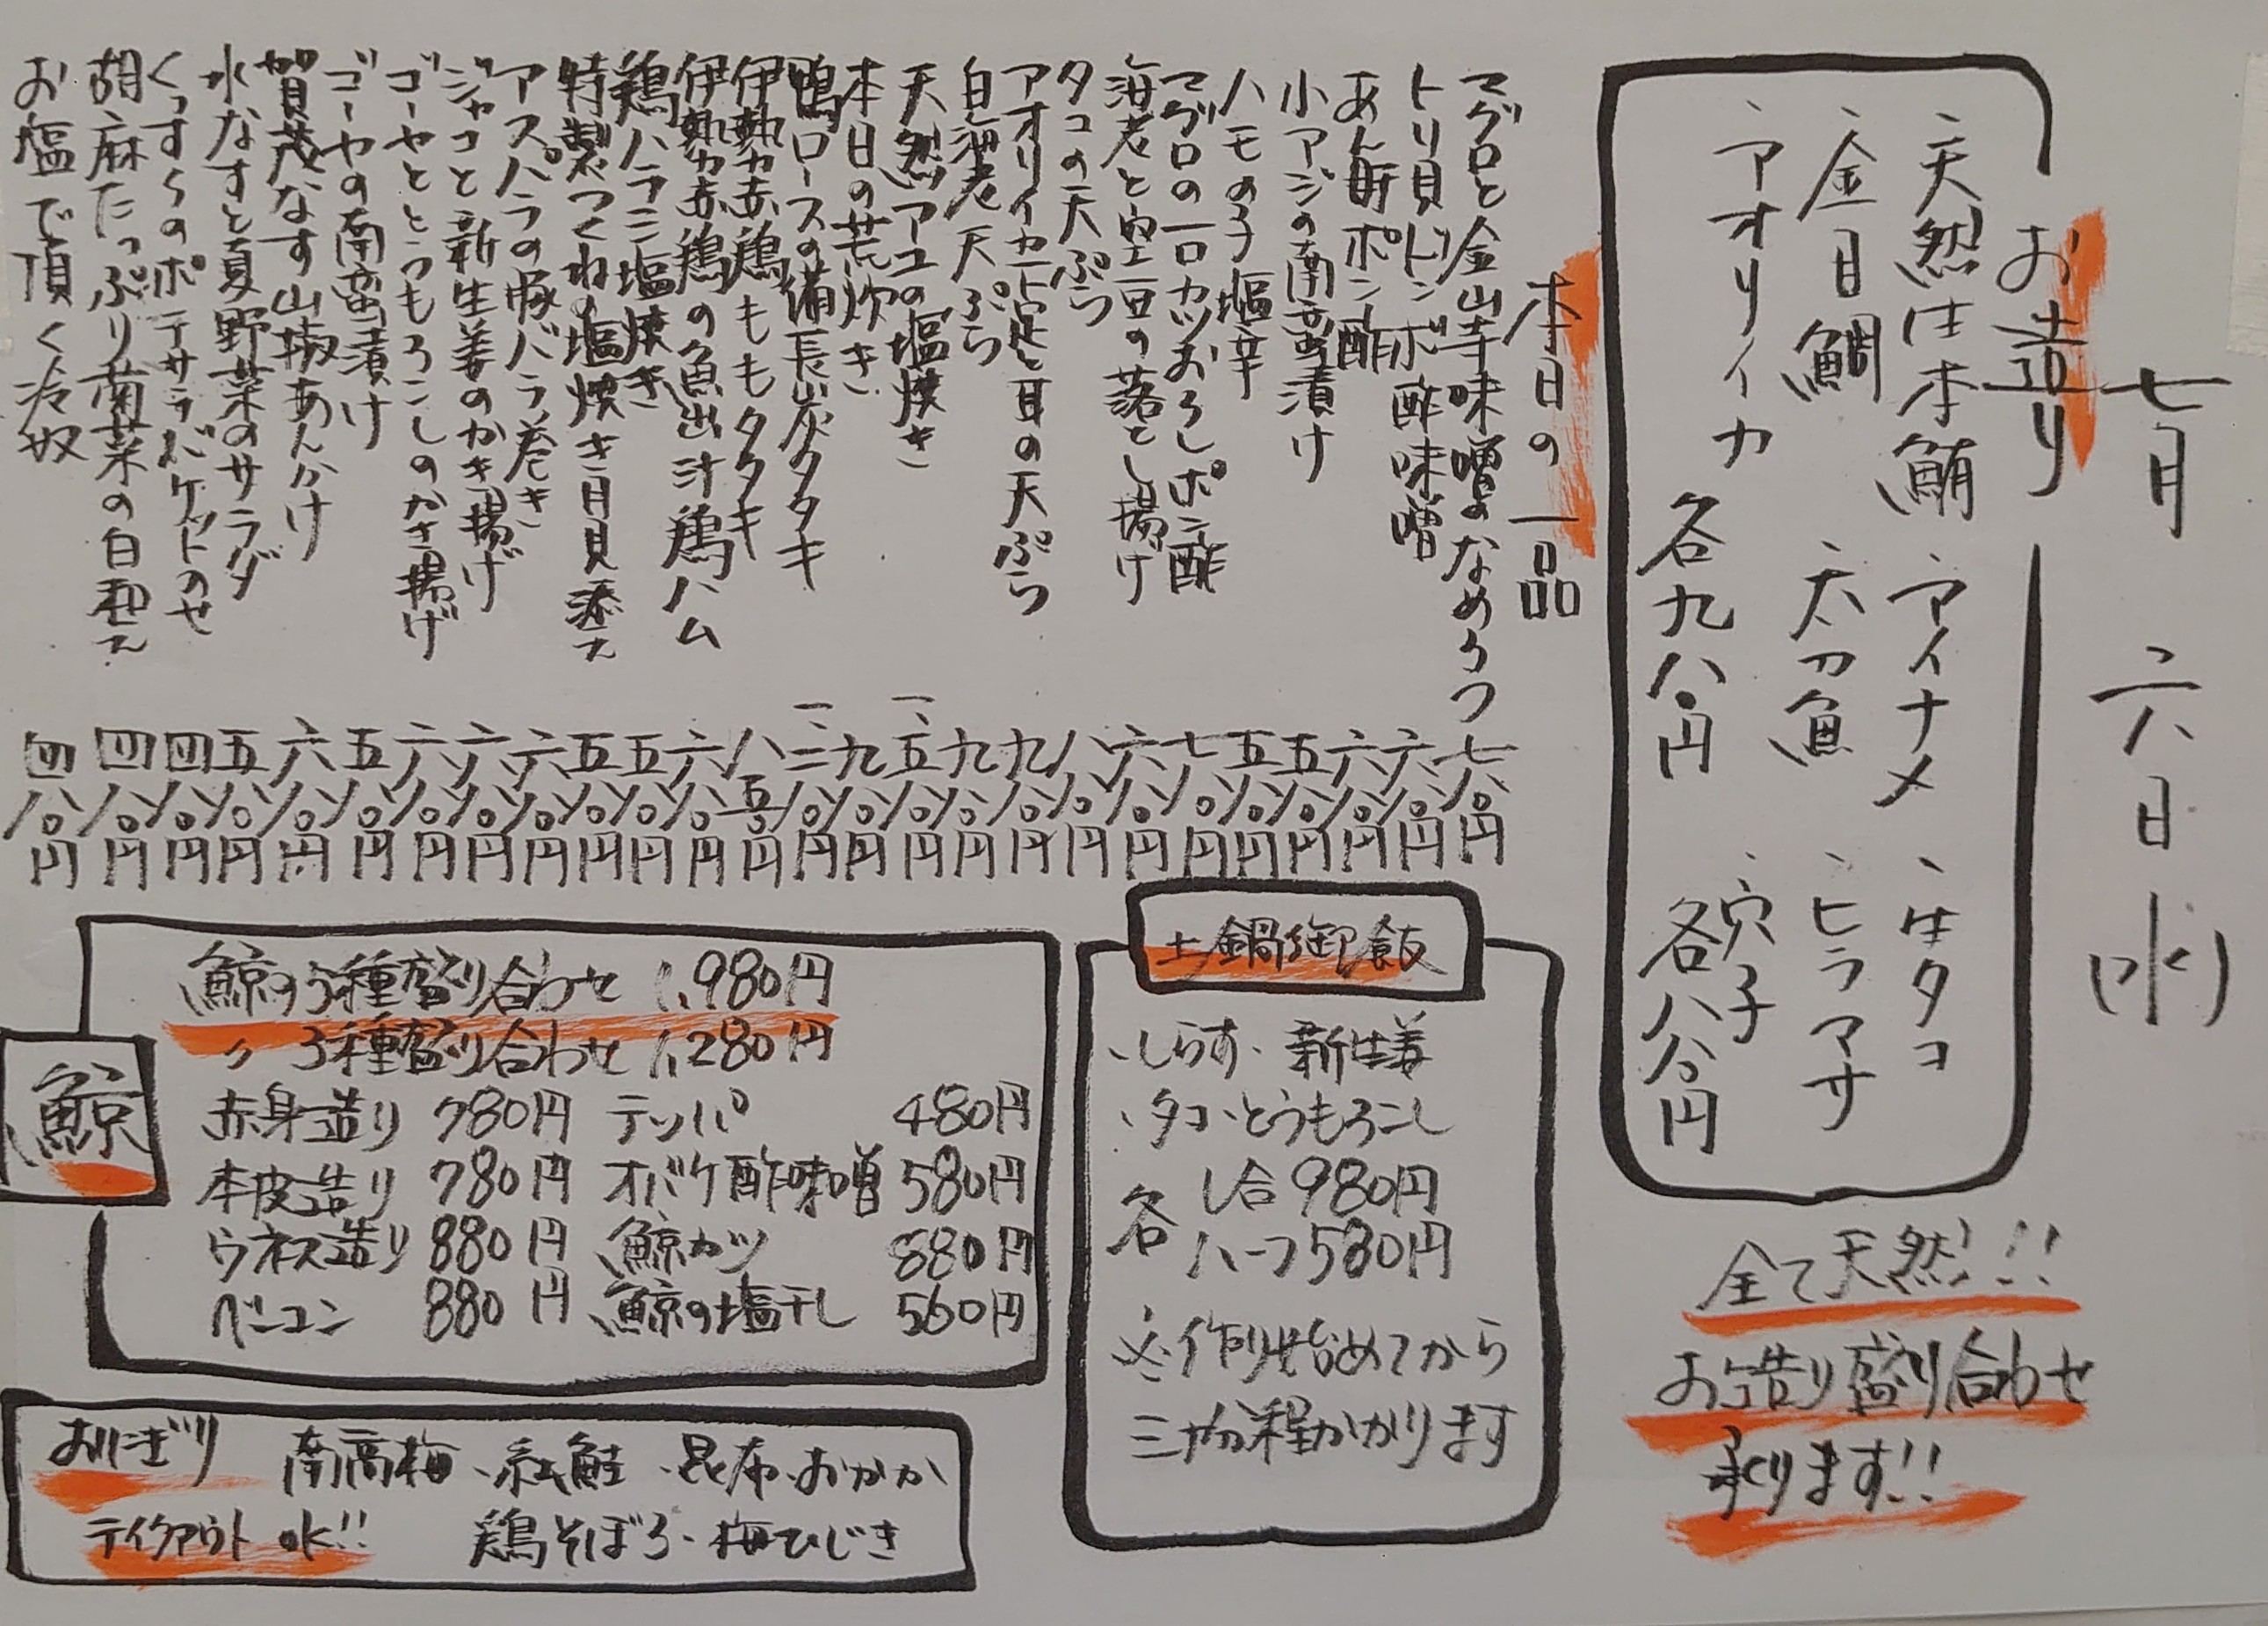 七月 六日 水)
お造り
、天然生本鮪 、アイナメ 、生タコ
、金目鯛 、太刀魚 、ヒラマサ
、アオリイカ 、穴子
各九八〇円 各八八〇円
全て天然!!
お造り盛り合わせ
承ります!!
本日の一品
マグロと金山寺味噌のなめろう 七八〇円
トリ貝ドンボ酢味噌 六八〇円
あん肝ポン酢 六八〇円
小アジの南蛮漬け 五八〇円
ハモの子塩辛 五八〇円
マグロの一口カツおろしポン酢 七八〇円
海老と空豆の落とし揚げ 六八〇円
タコの天ぷら 八八〇円
アオリイカ下足と耳の天ぷら 九八〇円
白海老天ぷら 九八〇円
天然アユの塩焼き 一、五八〇円
本日の荒炊き 九八〇円
鴨ロースの備長炭タタキ 一、二八〇円
伊勢赤鶏ももタタキ 八五〇円
伊勢赤鶏の魚出汁鶏ハム 六八〇円
鶏ハラミ塩焼き 五八〇円
特製つくねの塩焼き月見添え 五八〇円
アスパラの豚バラ巻き 六八〇円
ジャコと新生姜のかき揚げ 六八〇円
ゴーヤととうもろこしのかき揚げ 六八〇円
ゴーヤの南蛮漬け 五八〇円
賀茂なす山椒あんかけ 六八〇円
水なすと夏野菜のサラダ 五八〇円
くんすくのポテサラバケットのせ 四八〇円
胡麻たっぷり菊菜の白和え 四八〇円
お塩で頂く冷奴 四八〇円
土鍋御飯
、しらす、新生姜
、タコ、とうもろこし
各 一合980円
ハーフ580円
※作り始めてから
三十分程かかります
鯨
鯨の5種盛り合わせ 1,980円
〃 3種盛り合わせ 1,280円
赤身造り 780円 テッパ 480円
本皮造り 780円 オバケ酢味噌 580円
ウネス造り 880円 鯨カツ 880円
ベーコン 880円 鯨の塩干し 560円
おにぎり 南高梅、紅鮭、昆布、おかか
テイクアウトok!! 鶏そぼろ、梅ひじき